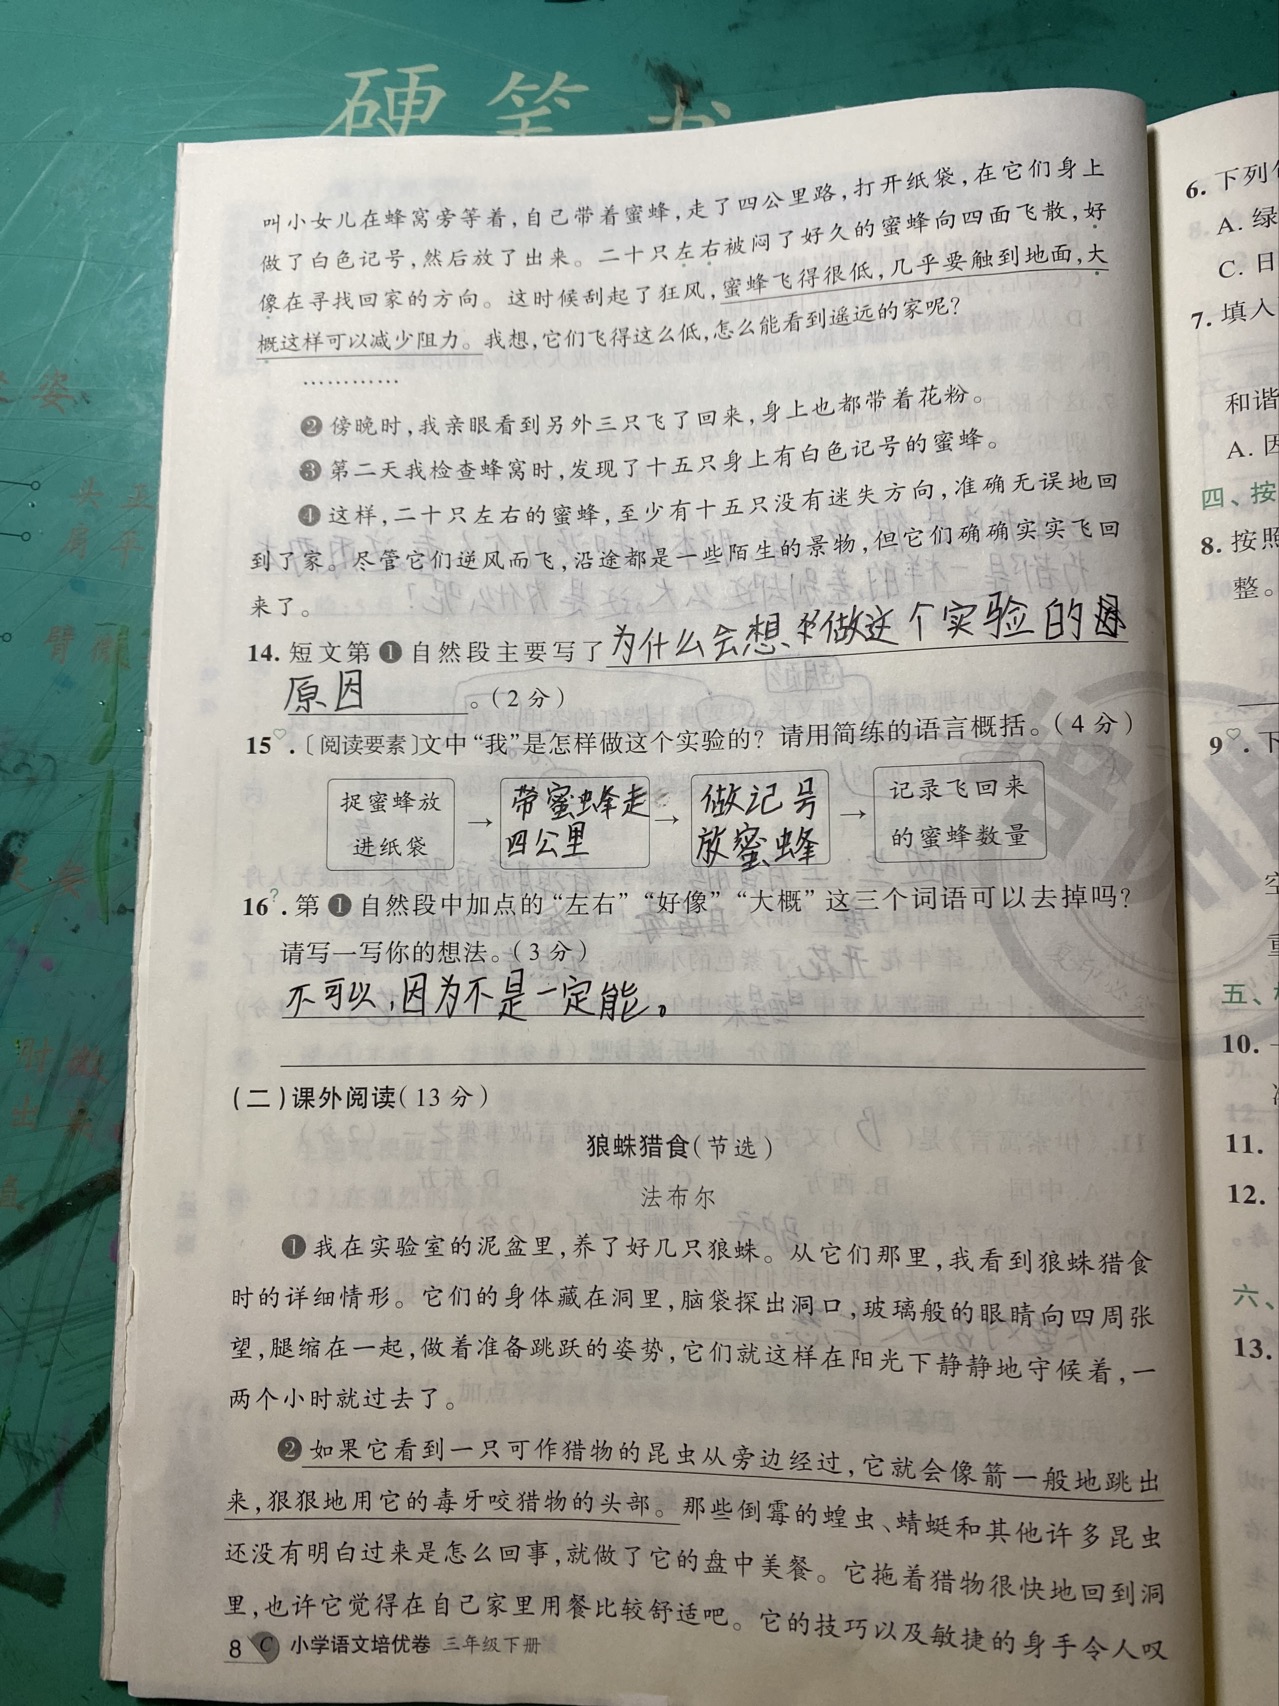 硬笔书
叫小女儿在蜂窝旁等着，自己带着蜜蜂，走了四公里路，打开纸袋，在它们身上
做了白色记号，然后放了出来。二十只左右被闷了好久的蜜蜂向四面飞散，好
像在寻找回家的方向。这时候刮起了狂风，蜜蜂飞得很低，几乎要触到地面，大
概这样可以减少阻力。我想，它们飞得这么低，怎么能看到遥远的家呢？
…………
❷傍晚时，我亲眼看到另外三只飞了回来，身上也都带着花粉。
❸第二天我检查蜂窝时，发现了十五只身上有白色记号的蜜蜂。
❹这样，二十只左右的蜜蜂，至少有十五只没有迷失方向，准确无误地回
到了家。尽管它们逆风而飞，沿途都是一些陌生的景物，但它们确确实实飞回
来了。
14. 短文第❶自然段主要写了为什么会想做这个实验的
原因。（2分）
15♡.〔阅读要素〕文中“我”是怎样做这个实验的？请用简练的语言概括。（4分）
捉蜜蜂放 带蜜蜂走 做记号 记录飞回来
进纸袋 → 四公里 → 放蜜蜂 → 的蜜蜂数量
16?.第❶自然段中加点的“左右”“好像”“大概”这三个词语可以去掉吗？
请写一写你的想法。（3分）
不可以，因为不是一定能。
（二）课外阅读（13分）
狼蛛猎食（节选）
法布尔
❶我在实验室的泥盆里，养了好几只狼蛛。从它们那里，我看到狼蛛猎食
时的详细情形。它们的身体藏在洞里，脑袋探出洞口，玻璃般的眼睛向四周张
望，腿缩在一起，做着准备跳跃的姿势，它们就这样在阳光下静静地守候着，一
两个小时就过去了。
❷如果它看到一只可作猎物的昆虫从旁边经过，它就会像箭一般地跳出
来，狠狠地用它的毒牙咬猎物的头部。那些倒霉的蝗虫、蜻蜓和其他许多昆虫
还没有明白过来是怎么回事，就做了它的盘中美餐。它拖着猎物很快地回到洞
里，也许它觉得在自己家里用餐比较舒适吧。它的技巧以及敏捷的身手令人叹
8 C 小学语文培优卷 三年级下册
6. 下列
A. 绿
C. 日
7. 填入
和谐
A. 因
四、按
8. 按照
整。
9♡. 下
五、
10.
11.
12.
六、
13.